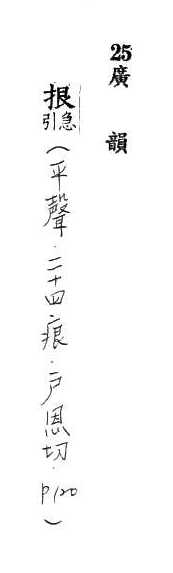 25廣韻
拫急引（平聲．二十四痕．戶恩切．P120）